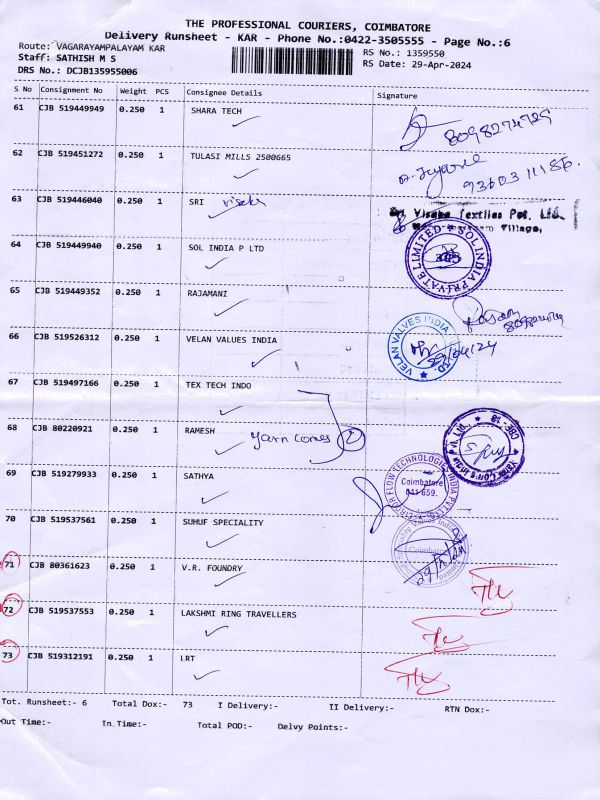 THE PROFESSIONAL COURIERS, COIMBATORE
Delivery Runsheet - KAR - Phone No.:0422-3505555 - Page No.:6
Route: VAGARAYAMPALAYAM KAR
RS No.: 1359550
Staff: SATHISH M S
RS Date: 29-Apr-2024
DRS No.: DCJB135955006
S No Consignment No Weight PCS Consignee Details Signature
61 CJB 519449949 0.250 1 SHARA TECH
8098274729
62 CJB 519451272 0.250 1 TULASI MILLS 2500665
63 CJB 519446040 0.250 1 SRI
Textiles Pvt. Ltd.
Village,
64 CJB 519449940 0.250 1 SOL INDIA P LTD
SOL INDIA PRIVATE LIMITED
65 CJB 519449352 0.250 1 RAJAMANI
66 CJB 519526312 0.250 1 VELAN VALUES INDIA
VELAN VALVES INDIA
29/04/24
67 CJB 519497166 0.250 1 TEX TECH INDO
68 CJB 80220921 0.250 1 RAMESH yarn cones 2
CBE - 19
69 CJB 519279933 0.250 1 SATHYA
FLOW TECHNOLOGIES INDIA PVT
Coimbatore
641 659.
70 CJB 519537561 0.250 1 SUHUF SPECIALITY
Coimbatore
71 CJB 80361623 0.250 1 V.R. FOUNDRY
72 CJB 519537553 0.250 1 LAKSHMI RING TRAVELLERS
73 CJB 519312191 0.250 1 LRT
Tot. Runsheet:- 6 Total Dox:- 73 I Delivery:- II Delivery:- RTN Dox:-
Out Time:- In Time:- Total POD:- Delvy Points:-